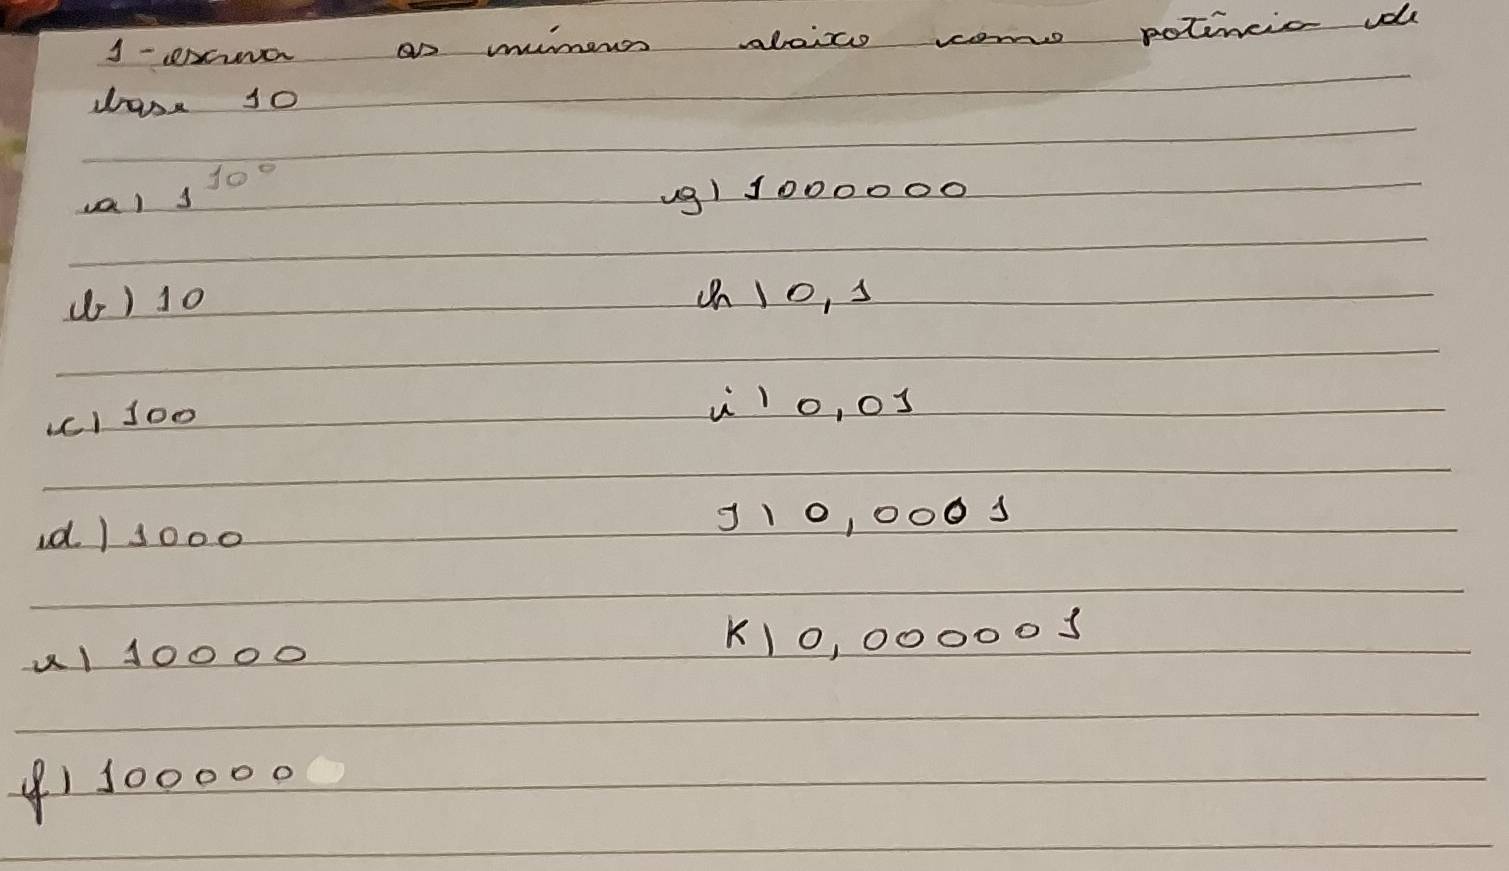 1 - escreva os números abaixo como potência de
base 10
a) 1 10⁰
g) 1000000
b) 10
h) 0,1
c) 100
i) 0,01
d) 1000
J) 0,0001
e) 10000
K) 0,000001
f) 100000